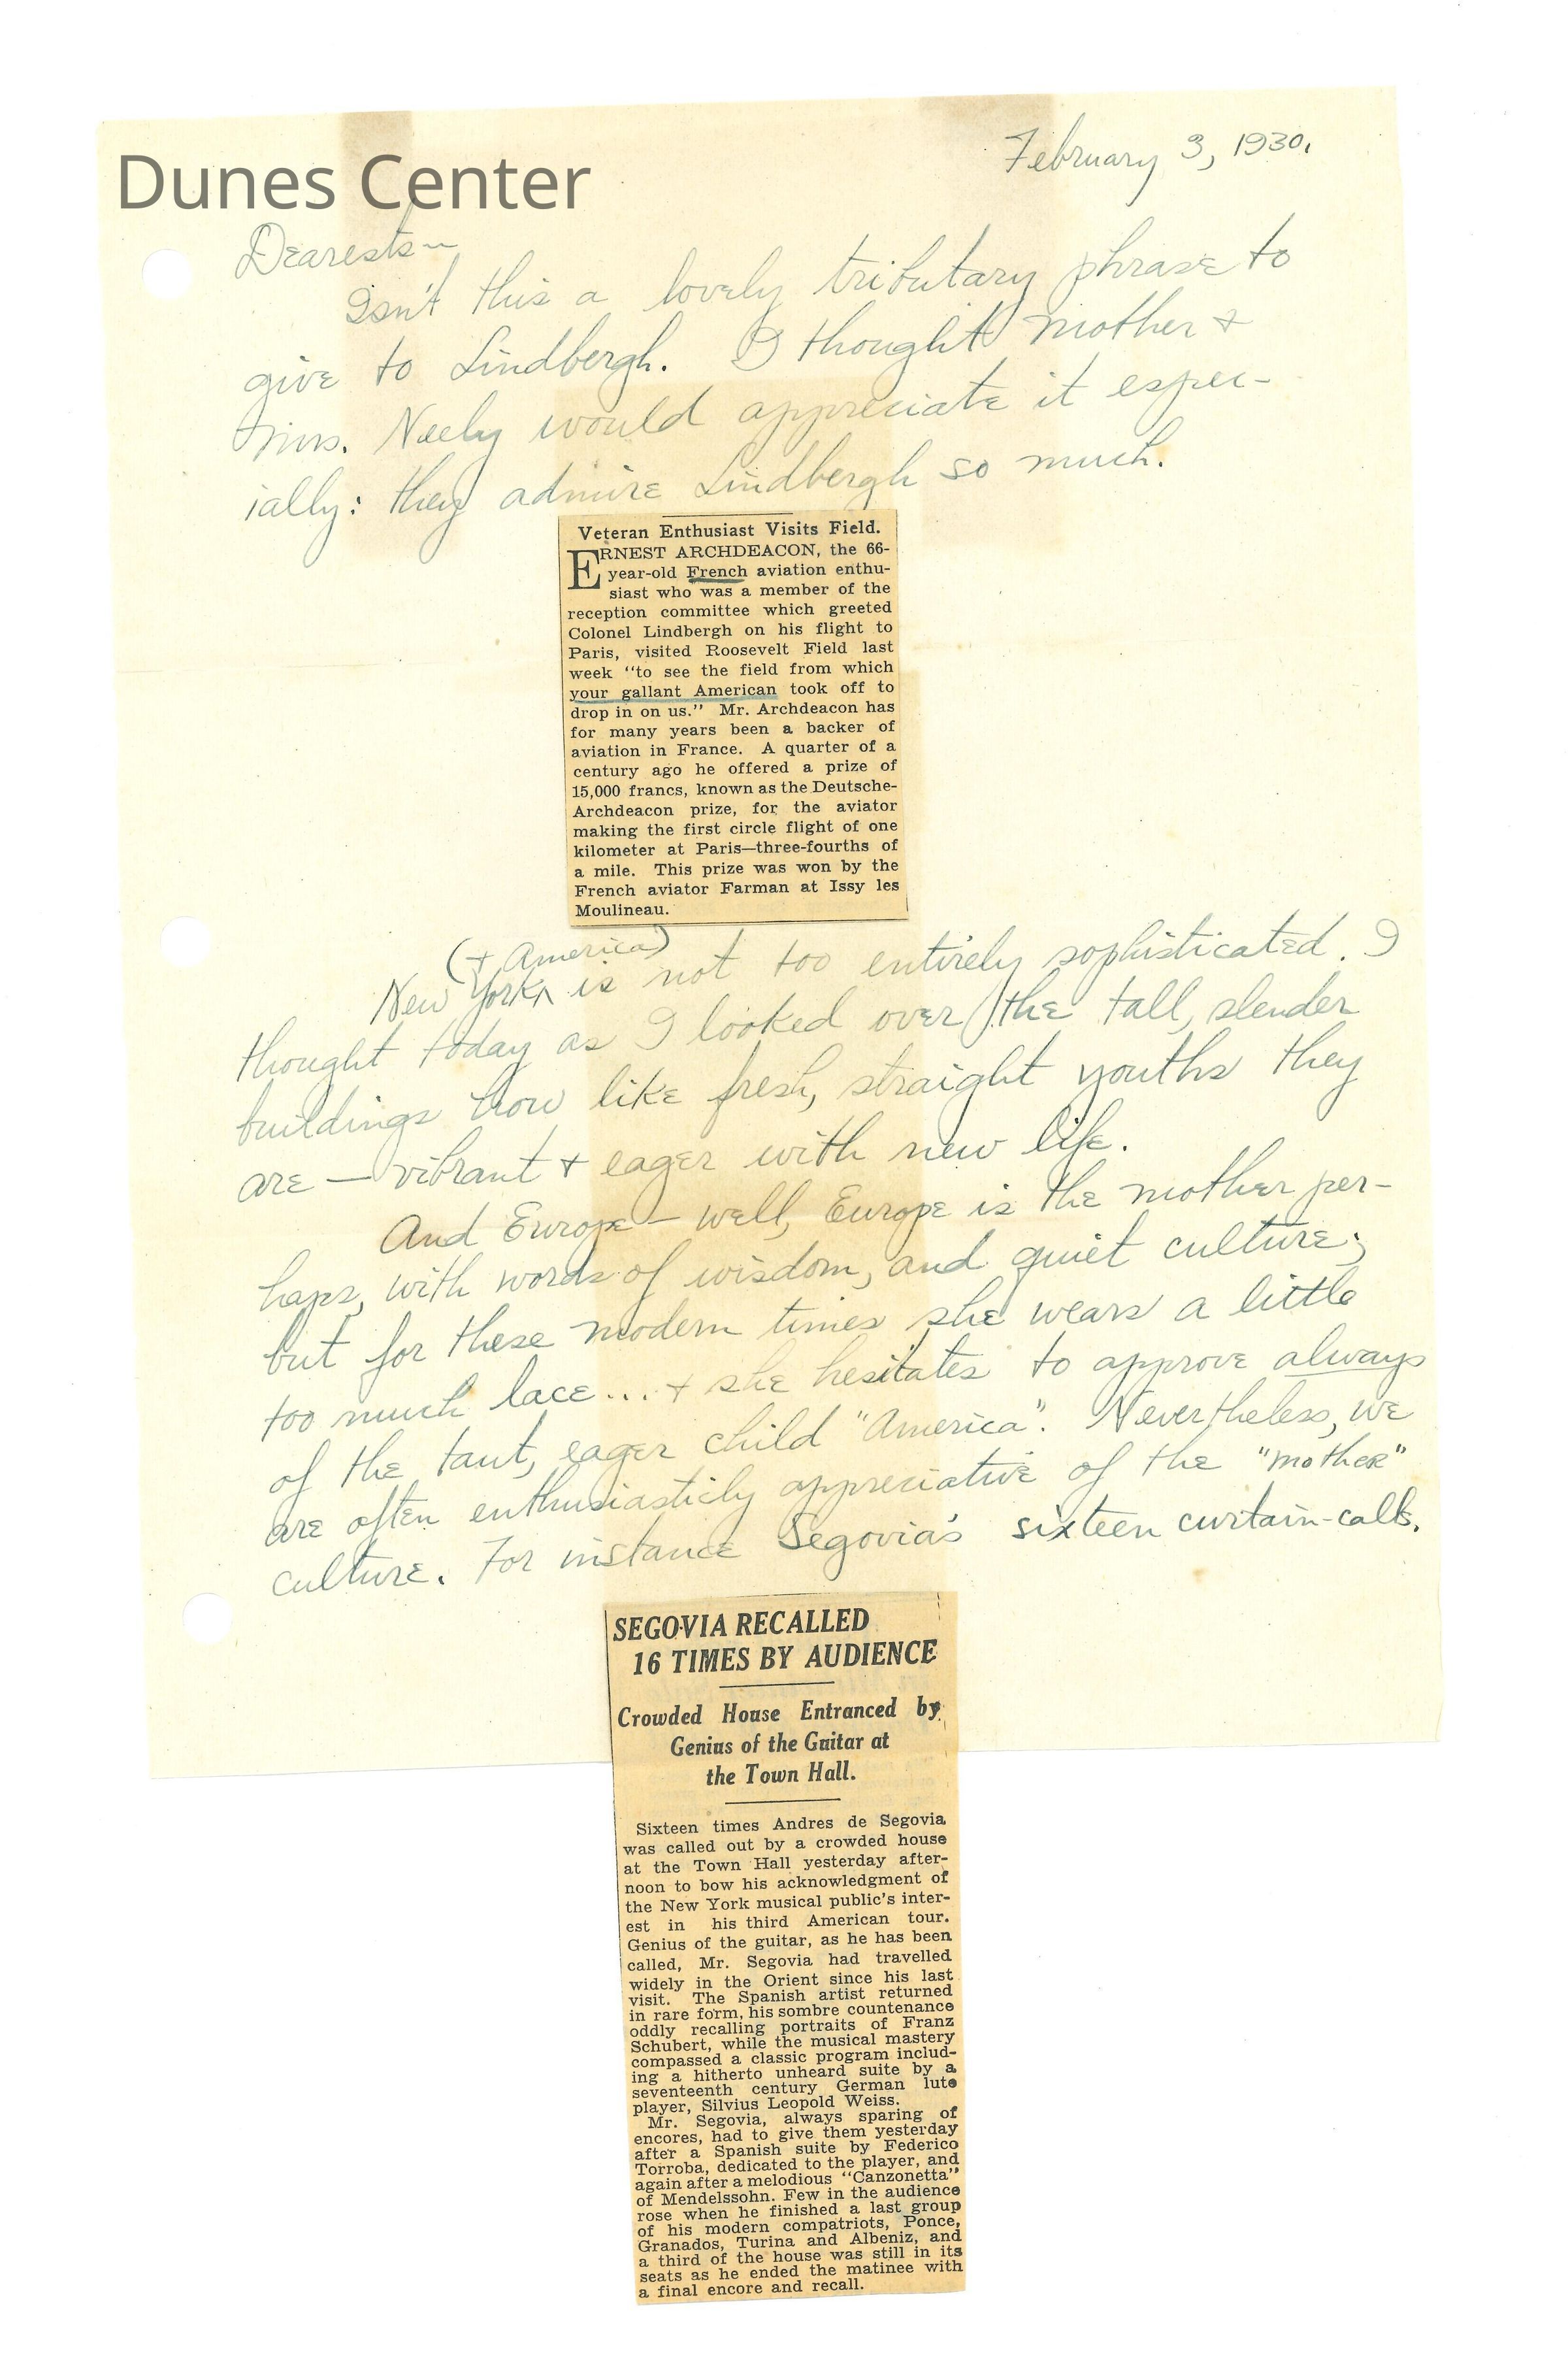 Dunes Center
February 3, 1930.
Dearests~
Isn't this a lovely tributary phrase to
give to Lindbergh. I thought Mother +
Mrs. Neely would appreciate it espec-
ially: they admire Lindbergh so much.
Veteran Enthusiast Visits Field.
ERNEST ARCHDEACON, the 66-
year-old French aviation enthu-
siast who was a member of the
reception committee which greeted
Colonel Lindbergh on his flight to
Paris, visited Roosevelt Field last
week "to see the field from which
your gallant American took off to
drop in on us." Mr. Archdeacon has
for many years been a backer of
aviation in France. A quarter of a
century ago he offered a prize of
15,000 francs, known as the Deutsche-
Archdeacon prize, for the aviator
making the first circle flight of one
kilometer at Paris—three-fourths of
a mile. This prize was won by the
French aviator Farman at Issy les
Moulineau.
(+ America)
New York^ is not too entirely sophisticated. I
thought today as I looked over the tall, slender
buildings how like fresh, straight youths they
are — vibrant + eager with new life.
And Europe — well, Europe is the mother per-
haps, with words of wisdom, and quiet culture;
but for these modern times she wears a little
too much lace... + she hesitates to approve always
of the taut, eager child "America". Nevertheless, we
are often enthusiasticly appreciative of the "mother"
culture. For instance Segovia's sixteen curtain-calls.
SEGOVIA RECALLED
16 TIMES BY AUDIENCE
Crowded House Entranced by
Genius of the Guitar at
the Town Hall.
Sixteen times Andres de Segovia
was called out by a crowded house
at the Town Hall yesterday after-
noon to bow his acknowledgment of
the New York musical public's inter-
est in his third American tour.
Genius of the guitar, as he has been
called, Mr. Segovia had travelled
widely in the Orient since his last
visit. The Spanish artist returned
in rare form, his sombre countenance
oddly recalling portraits of Franz
Schubert, while the musical mastery
compassed a classic program includ-
ing a hitherto unheard suite by a
seventeenth century German lute
player, Silvius Leopold Weiss.
Mr. Segovia, always sparing of
encores, had to give them yesterday
after a Spanish suite by Federico
Torroba, dedicated to the player, and
again after a melodious "Canzonetta"
of Mendelssohn. Few in the audience
rose when he finished a last group
of his modern compatriots, Ponce,
Granados, Turina and Albeniz, and
a third of the house was still in its
seats as he ended the matinee with
a final encore and recall.